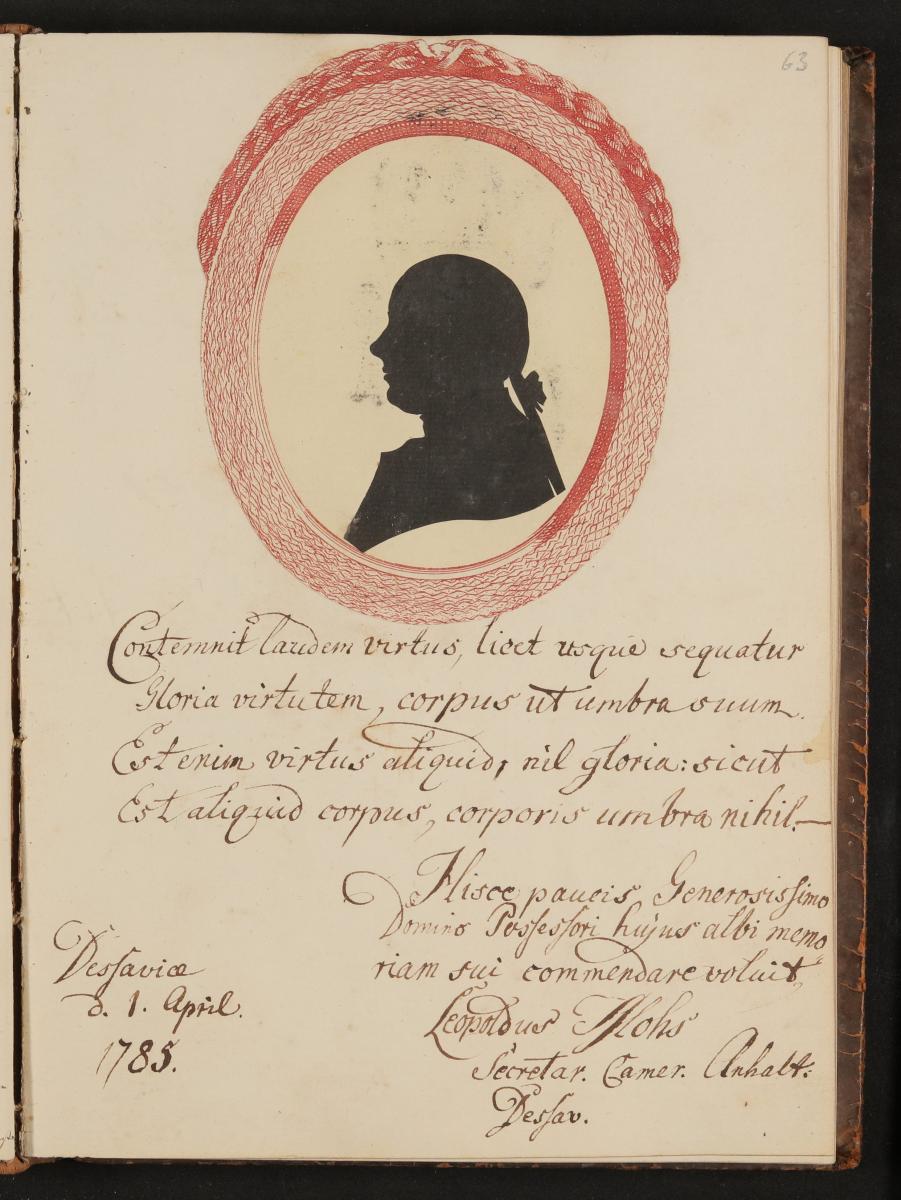 63
Contemnit laudem virtus, licet usque sequatur
Gloria virtutem, corpus ut umbra suum.
Est enim virtus aliquid, nil gloria: sicut
Est aliquid corpus, corporis umbra nihil.—
Hisce paucis Generosissimo
Domino Possessori hujus albi memo
riam sui commendare voluit
Leopoldus
Secretar. Camer. Anhalt:
Dessav.
Dessaviæ
d. 1. April.
1785.